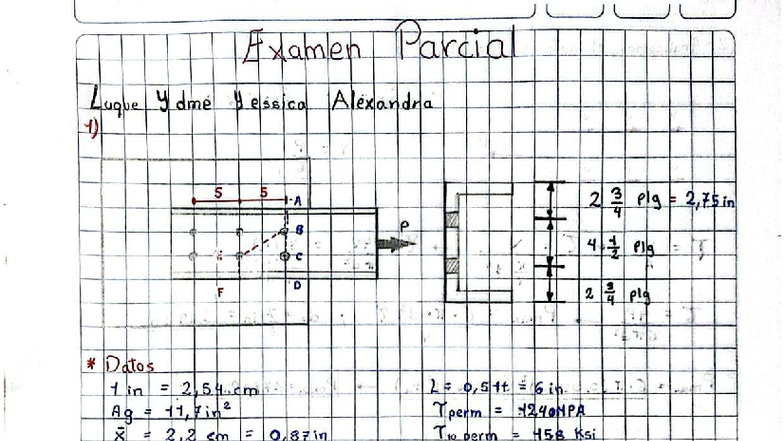 Examen Parcial
Luque Ydme Yessica Alexandra
1)
S S A
B
C
D
F
P
2 3/4 plg = 2,75 in
4 1/2 plg
2 3/4 plg
* Datos
1 in = 2,54 cm
Ag = 11,7 in²
x̄ = 2,2 cm = 0,87 in
L = 0,5 ft = 6 in
Tperm = 1240 MPA
perm = 158 Ksi